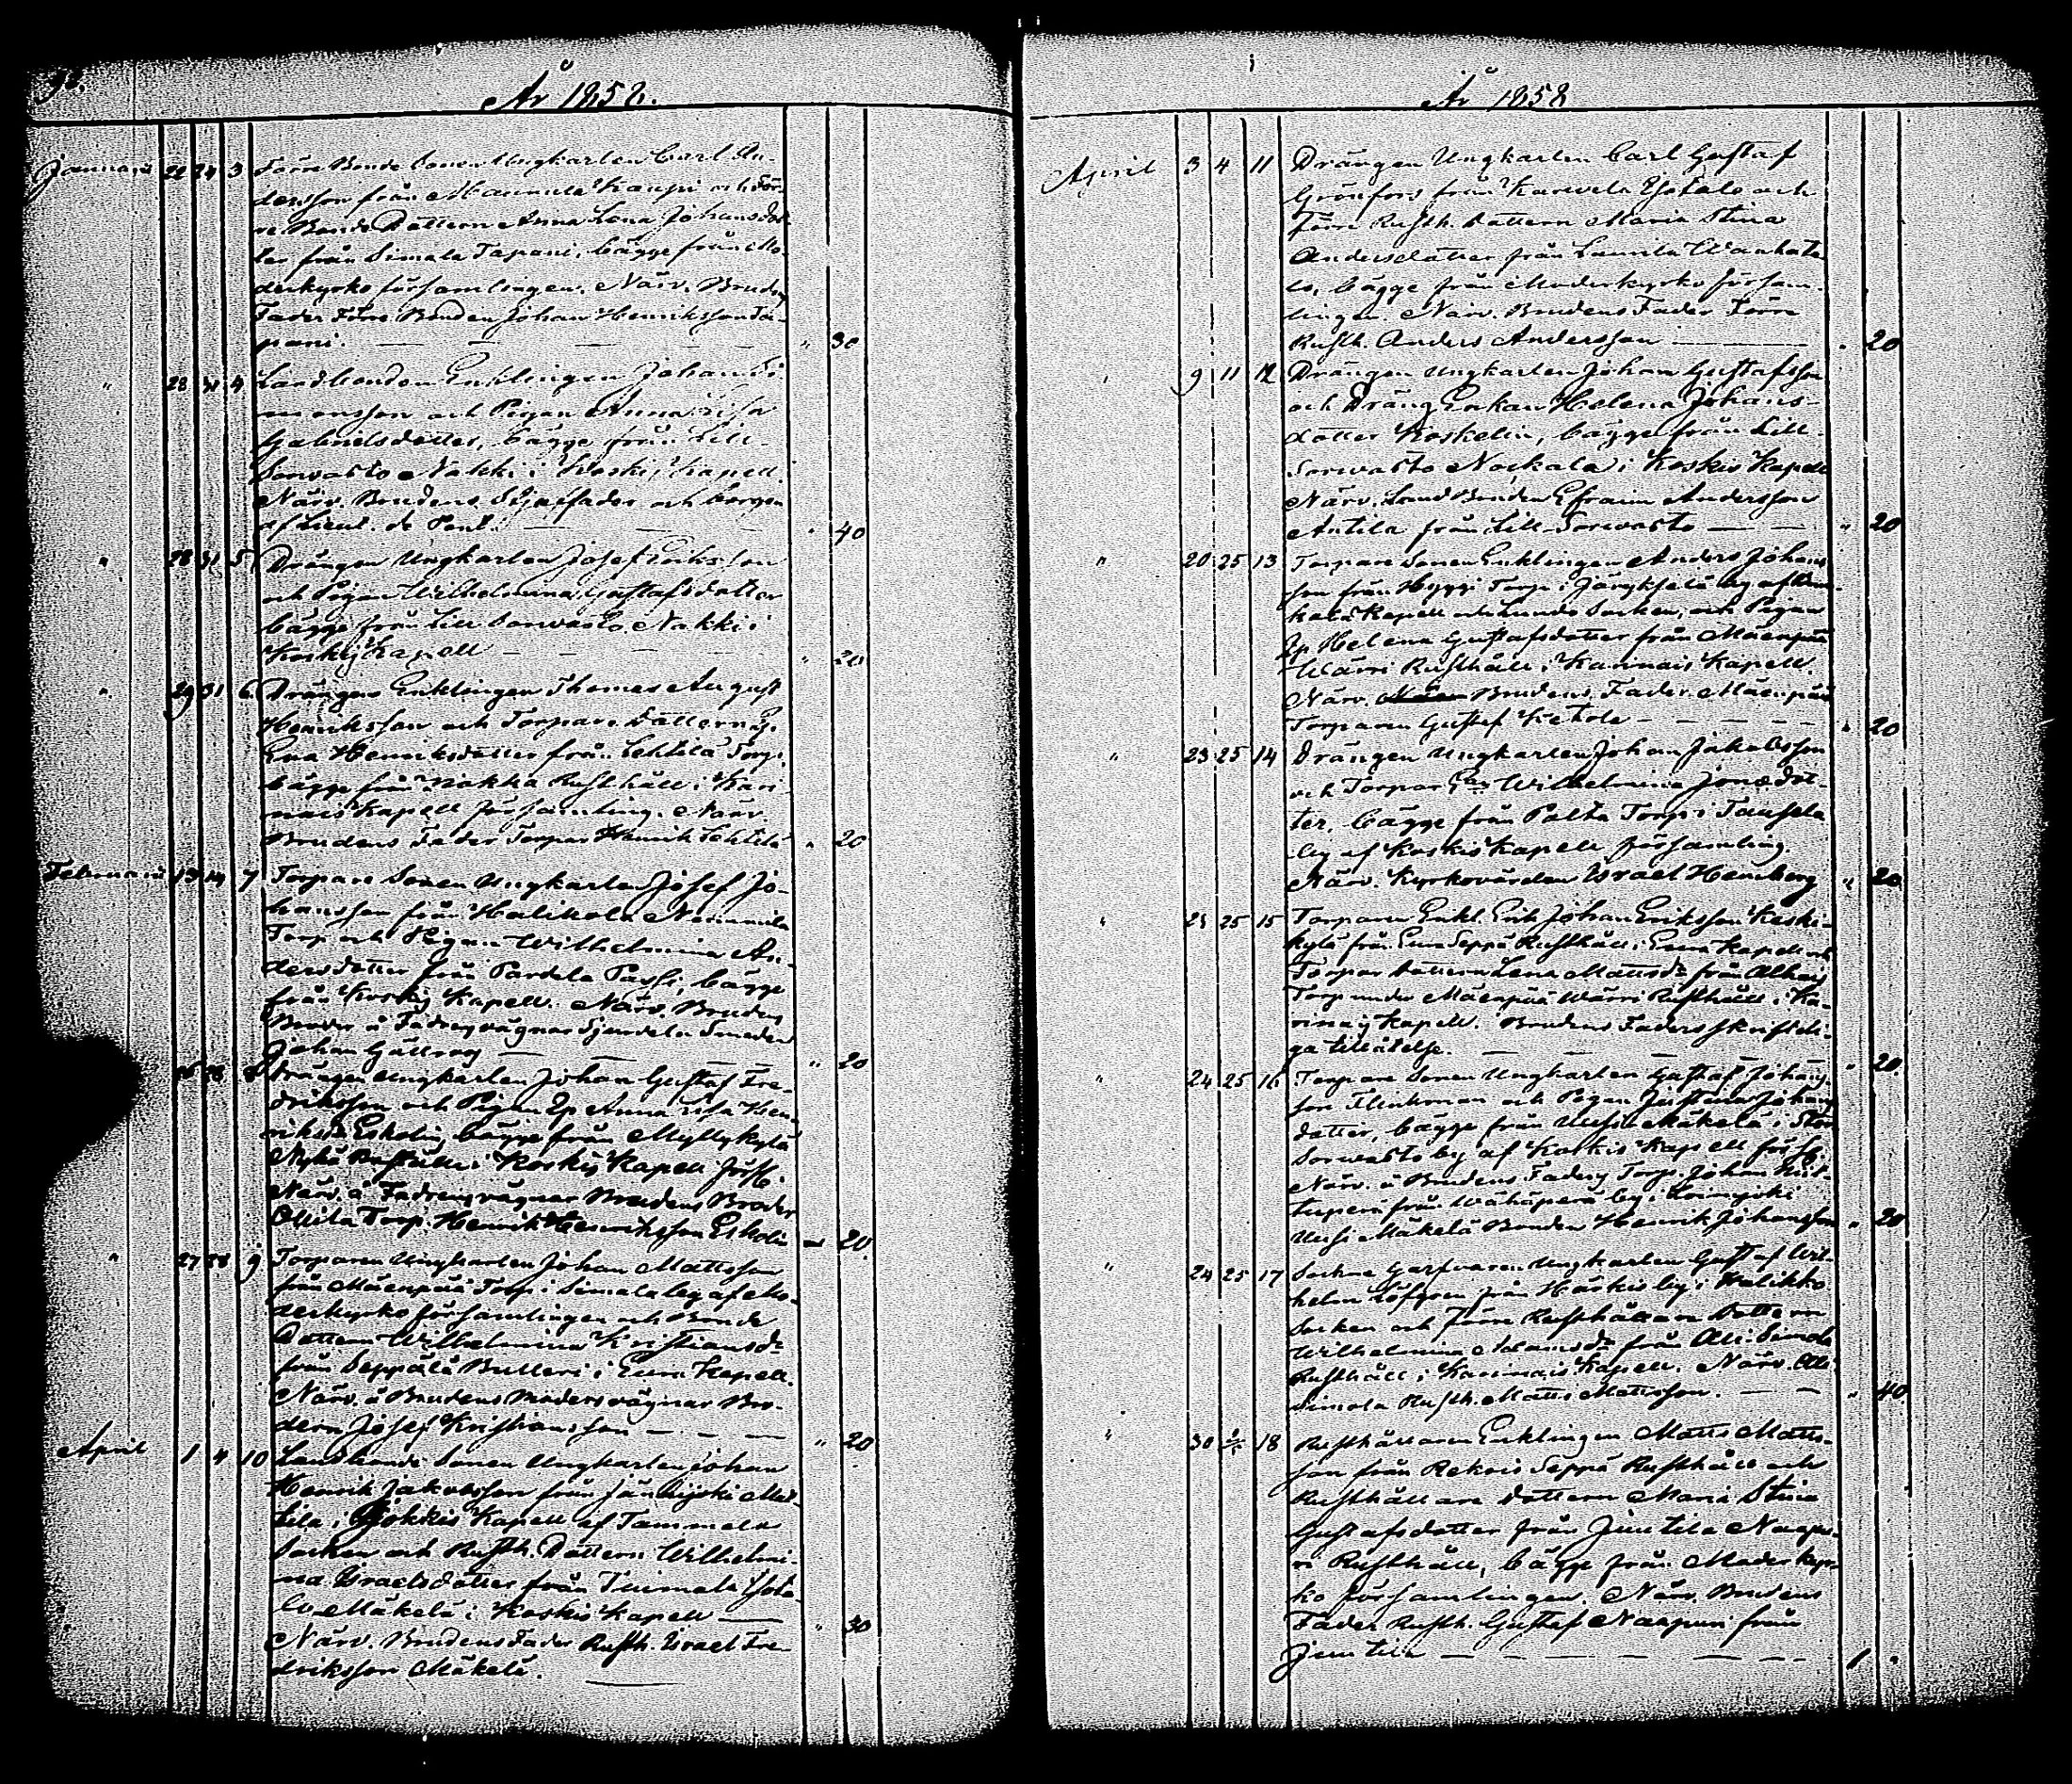 År 1858.
Januari 22 24 3 Förre Bonde Sonen Ungkarlen Carl An-
dersson från Mannula Kauppi och För-
re Bonde Dottern Anna Lena Johansdot-
ter från Simala Tapani, bägge från Mo-
derkyrko församlingen. Närv. Brudens
Fader Förre Bonden Johan Henriksson Ta-
pani. — — — — " 30
" 28 31 4 Landbonden Enklingen Johan Si-
monsson och Pigan Anna Lisa
Gabrielsdotter, bägge från Lill-
Sorvasto Nakki i Koskis Kapell.
Närv. Brudens Styffader och borgen
af Lieut. de Pont. — — — " 40
" 28 31 5 Drängen Ungkarlen Josef Eriksson
och Pigan Wilhelmina Gustafsdotter
bägge från Lill Sorvasto Nakki i
Koskis Kapell — — — — " 20
" 29 31 6 Drängen Enklingen Thomas August
Henriksson och Torpare Dottern
Eva Henriksdotter från Lehtilä Torp,
bägge från Nokka Rusthåll i Kari-
nais Kapell församling. Närv.
Brudens Fader Torpar Henrik Lehtilä " 20
Februari 13 14 7 Torpare Sonen Ungkarlen Josef Jo-
hansson från Halikola
Torp och Pigan Wilhelmina An-
dersdotter från Partela Passi, bägge
från Koskis Kapell. Närv. Brudens
Broder å Faderns vägnar Smeden
Johan — — — " 20
26 28 8 Drängen Ungkarlen Johan Gustaf Fre-
driksson och Pigan Anna Lisa Hen-
riksdr Eskolin, bägge från Myllykylä
Nykä Rusthåll i Koskis Kapell förs.
Närv. å Fadrens vägnar Brudens Broder
Ollila Torp. Henrik Henriksson Eskolin — 20
" 27 28 9 Torparen Ungkarlen Johan Mattsson
från Mäenpää Torp i Simala by af Mo-
derkyrko församlingen och Bonde
Dottern Wilhelmina Kristiansdr
från Seppälä Bulleri i Eura Kapell.
Närv. å Brudens Moders vägnar Bro-
dern Josef Kristiansson — — — " 20
April 1 4 10 Landbonde Sonen Ungkarlen Johan
Henrik Jakobsson från Jänhijoki Mat-
tila i Jokkis Kapell af Tammela
Socken och Rusth. Dottern Wilhelmi-
na Israelsdotter från Tuimala Iso-
lo-Mäkelä i Koskis Kapell — " 30
Närv. Brudens Fader Rusth. Israel Fre-
driksson Mäkelä.
År 1858
April 3 4 11 Drängen Ungkarlen Carl Gustaf
Grönfors från Karvela Isotalo och
Förre Rusth. Dottern Maria Stina
Andersdotter från Laurila Wanhata-
lo, bägge från Moderkyrko försam-
lingen. Närv. Brudens Fader Förre
Rusth. Anders Andersson — " 20
" 9 11 12 Drängen Ungkarlen Johan Gustafsson
och Dräng Enkan Helena Johans-
dotter Koskelin, bägge från Lill-
Sorvasto Nockala i Koskis Kapell
Närv. Land Bonden Efraim Andersson
Antila från Lill-Sorvasto — — " 20
" 20 25 13 Torpare Sonen Enklingen Anders Johans-
son från Hyyppi Torp i by af
Kapell och Lundo Socken, och Pigan
Helena Gustafsdotter från Mäenpää
Wärri Rusthåll i Karinais Kapell.
Närv. Brudens Fader Mäenpää
Torparen Gustaf Ketola — — — " 20
" 23 25 14 Drängen Ungkarlen Johan Jakobsson
och Torpar Wilhelmina Jonædot-
ter, bägge från Palta Torp i Tausela
by af Koskis Kapell församling.
Närv. Kyrkovärden Israel Hemberg " 20
" 23 25 15 Torpare Enkl. Erik Johan Eriksson Keski-
kylä från Eura Seppä Rusthåll i Eura Kapell och
Torpar Dottern Lena Mattsdr från
Torp under Mäenpää Wärri Rusthåll i Ka-
rinais Kapell. Brudens Faders skriftli-
ga tillåtelse. — — — — " 20
" 24 25 16 Torpare Sonen Ungkarlen Gustaf Johans-
son Flinkman och Pigan Justina Johans-
dotter, bägge från Uusi Mäkelä i Stor
Sorvasto by af Koskis Kapell förs.
Närv. å Brudens Faders Torp. Johan
från Wähäperä by i Loimijoki
Uusi Mäkelä Bonden Henrik Johansson " 20
" 24 25 17 Sockne Garfvaren Ungkarlen Gustaf Wil-
helm Löfgren från Härkis by i Halikko
Socken och Förre Rusthållare Dottern
Wilhelmina Adamsdr från Alli Simola
Rusthåll i Karinais Kapell. Närv. Alli
Simola Rusth. Matts Mattsson. — — " 40
" 30 2/5 18 Rusthållaren Enklingen Matts Matts-
son från Rekois Seppä Rusthåll och
Rusthållare Dottern Maria Stina
Gustafsdotter från Juntila Naapu-
ri Rusthåll, bägge från Moder kyr-
ko församlingen. Närv. Brudens
Fader Rusth. Gustaf Naapuri från
Juntila — — — — — 1 "